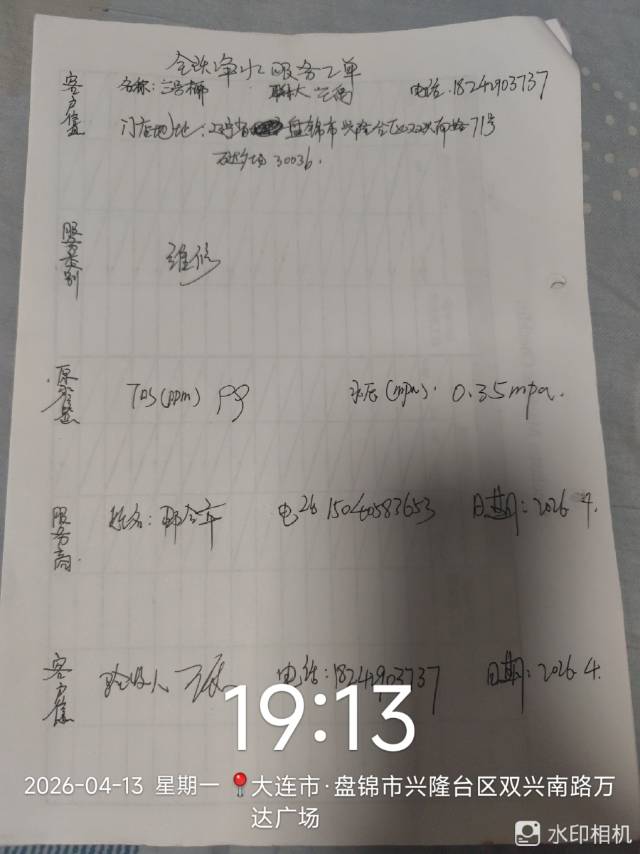 全球净水服务工单
客户信息
名称: 联系人 电话:18242903737
门店地址:辽宁省盘锦市兴隆台区双兴南路71号
万达广场 3003b.
服务类别
维修
原水信息
TDS(ppm) 99 水压(mpa). 0.35mpa.
服务商
姓名: 电话 15040583653 日期:2026.4.
客户信息
验收人 电话:18242903737 日期:2026.4.
19:13
2026-04-13 星期一 大连市·盘锦市兴隆台区双兴南路万
达广场
水印相机